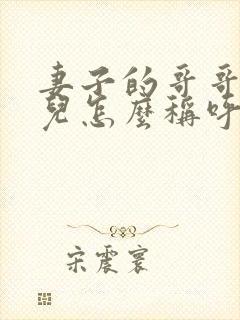 妻子的哥哥
兒怎麼稱呼
宋震寰